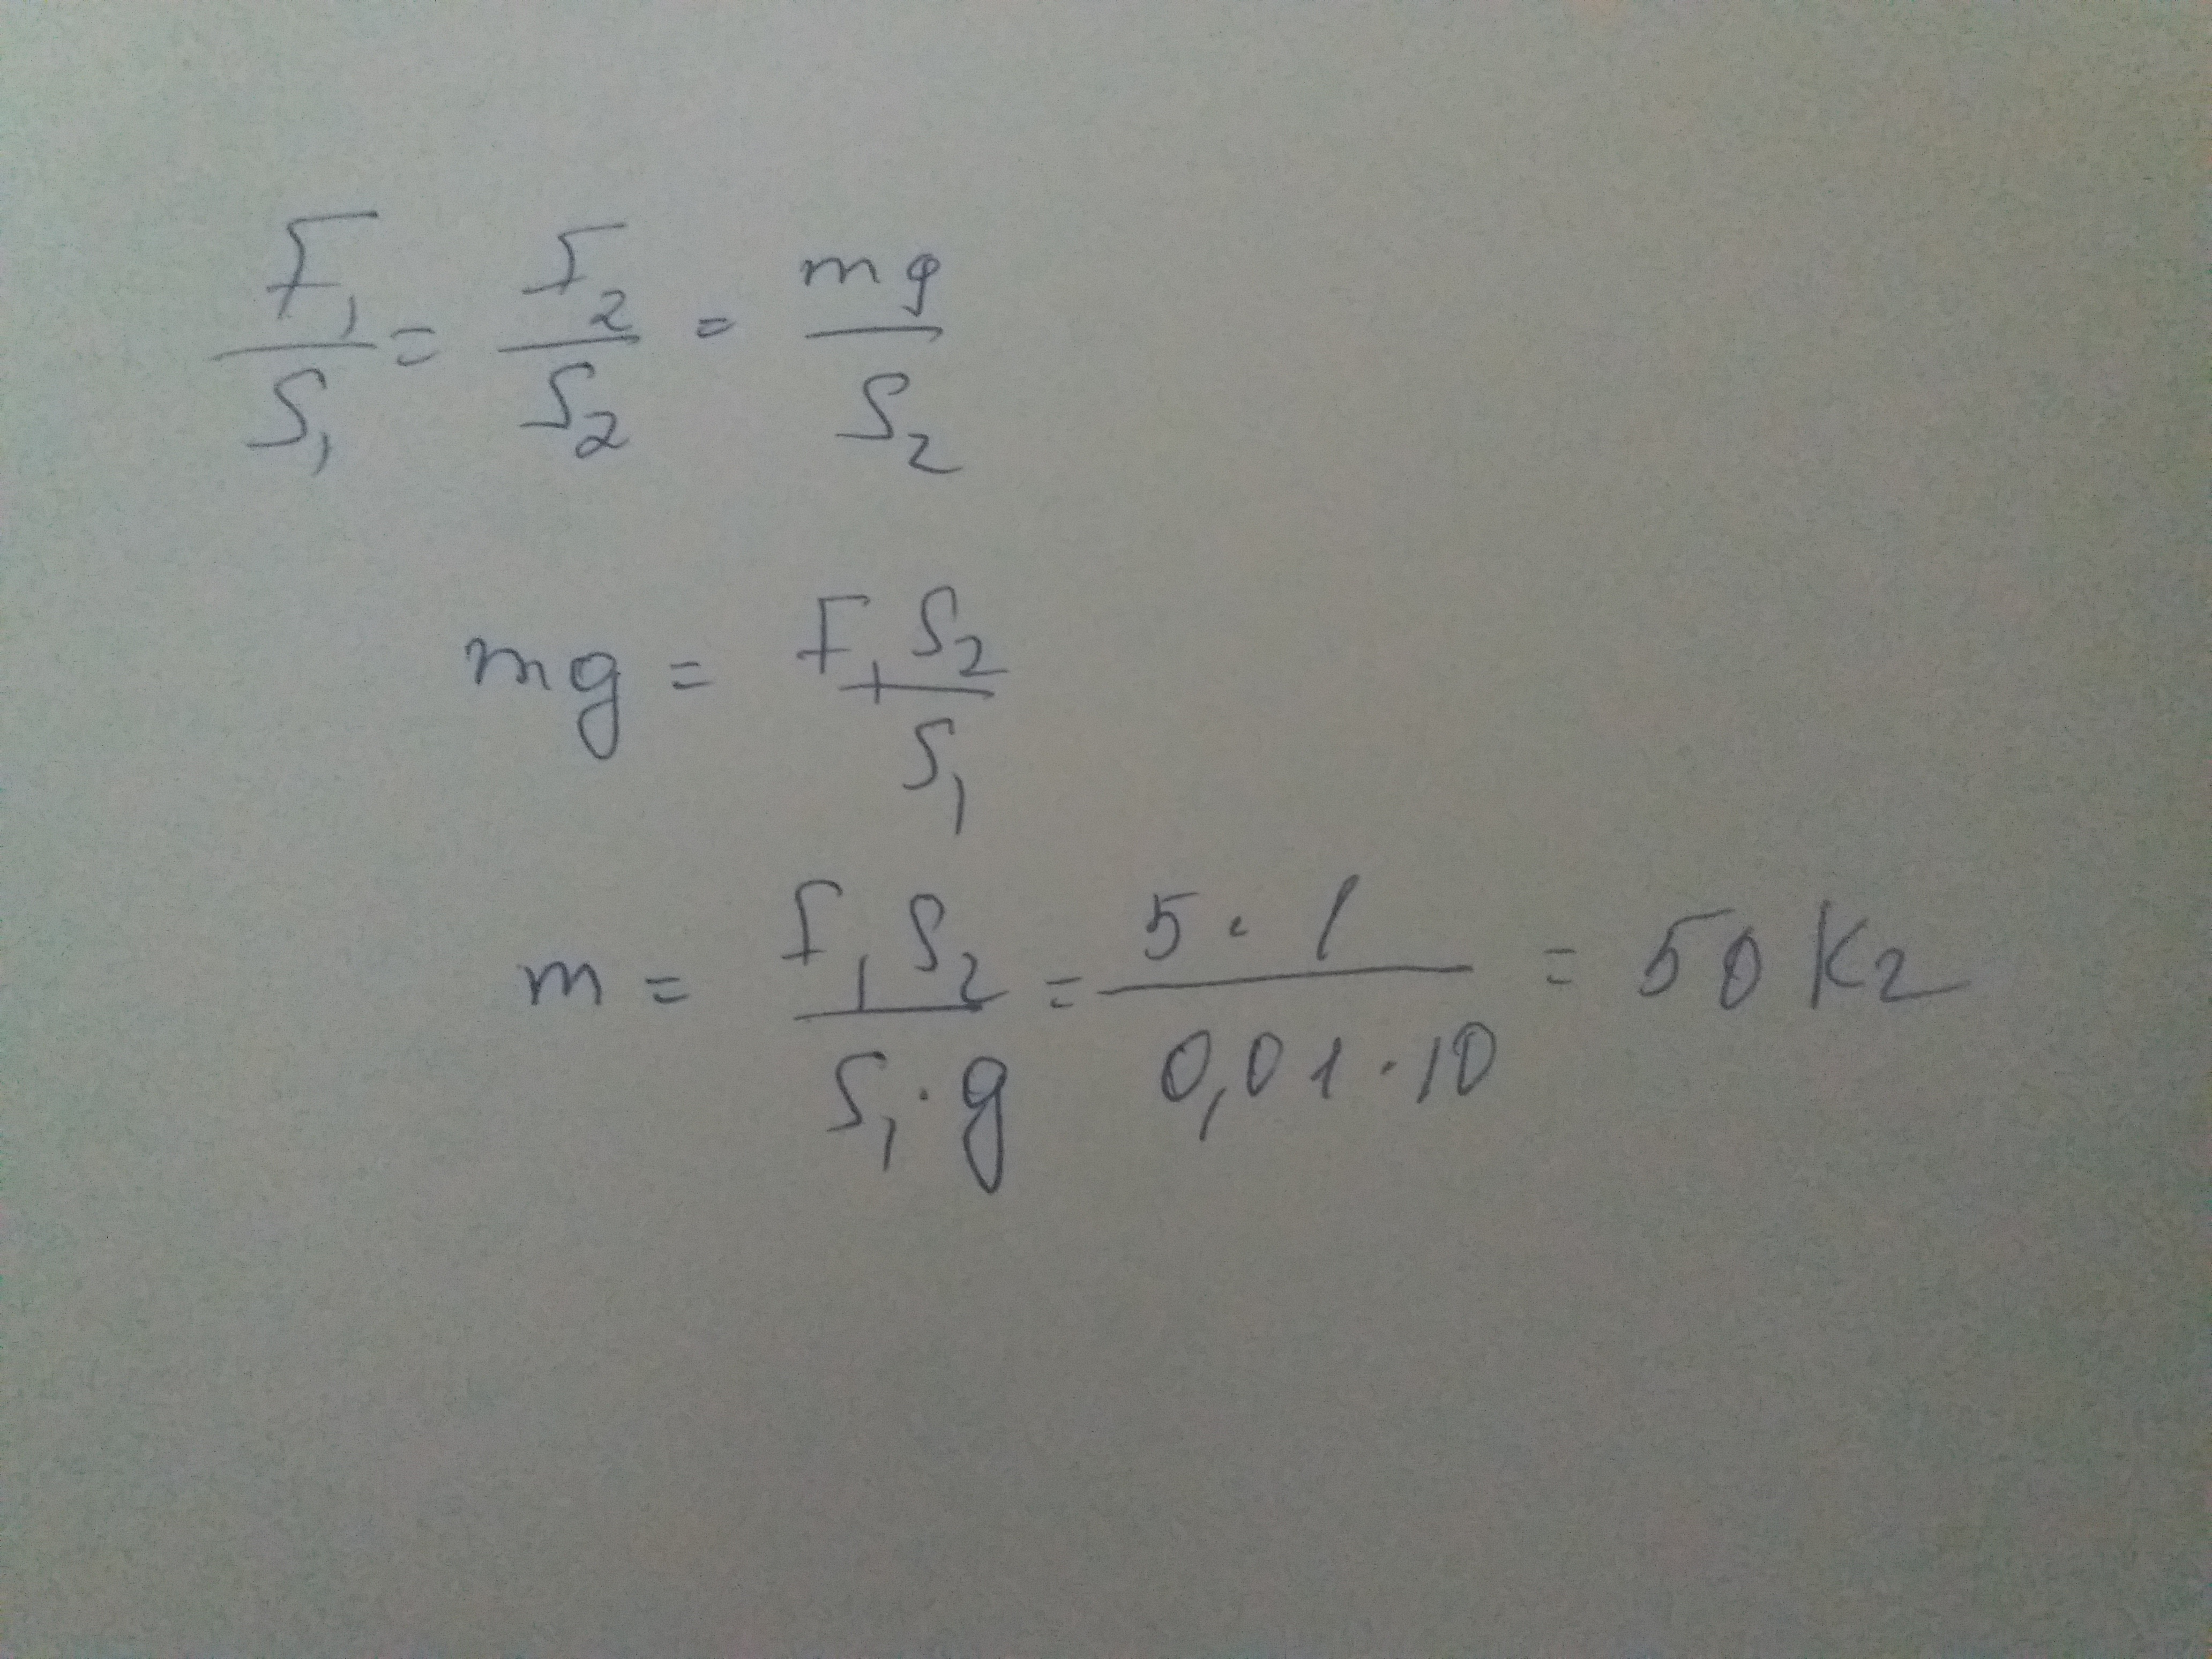 F₁/S₁ = F₂/S₂ = mg/S₂
mg = F₁S₂/S₁
m = F₁S₂/S₁·g = 5·1/0,01·10 = 50 кг